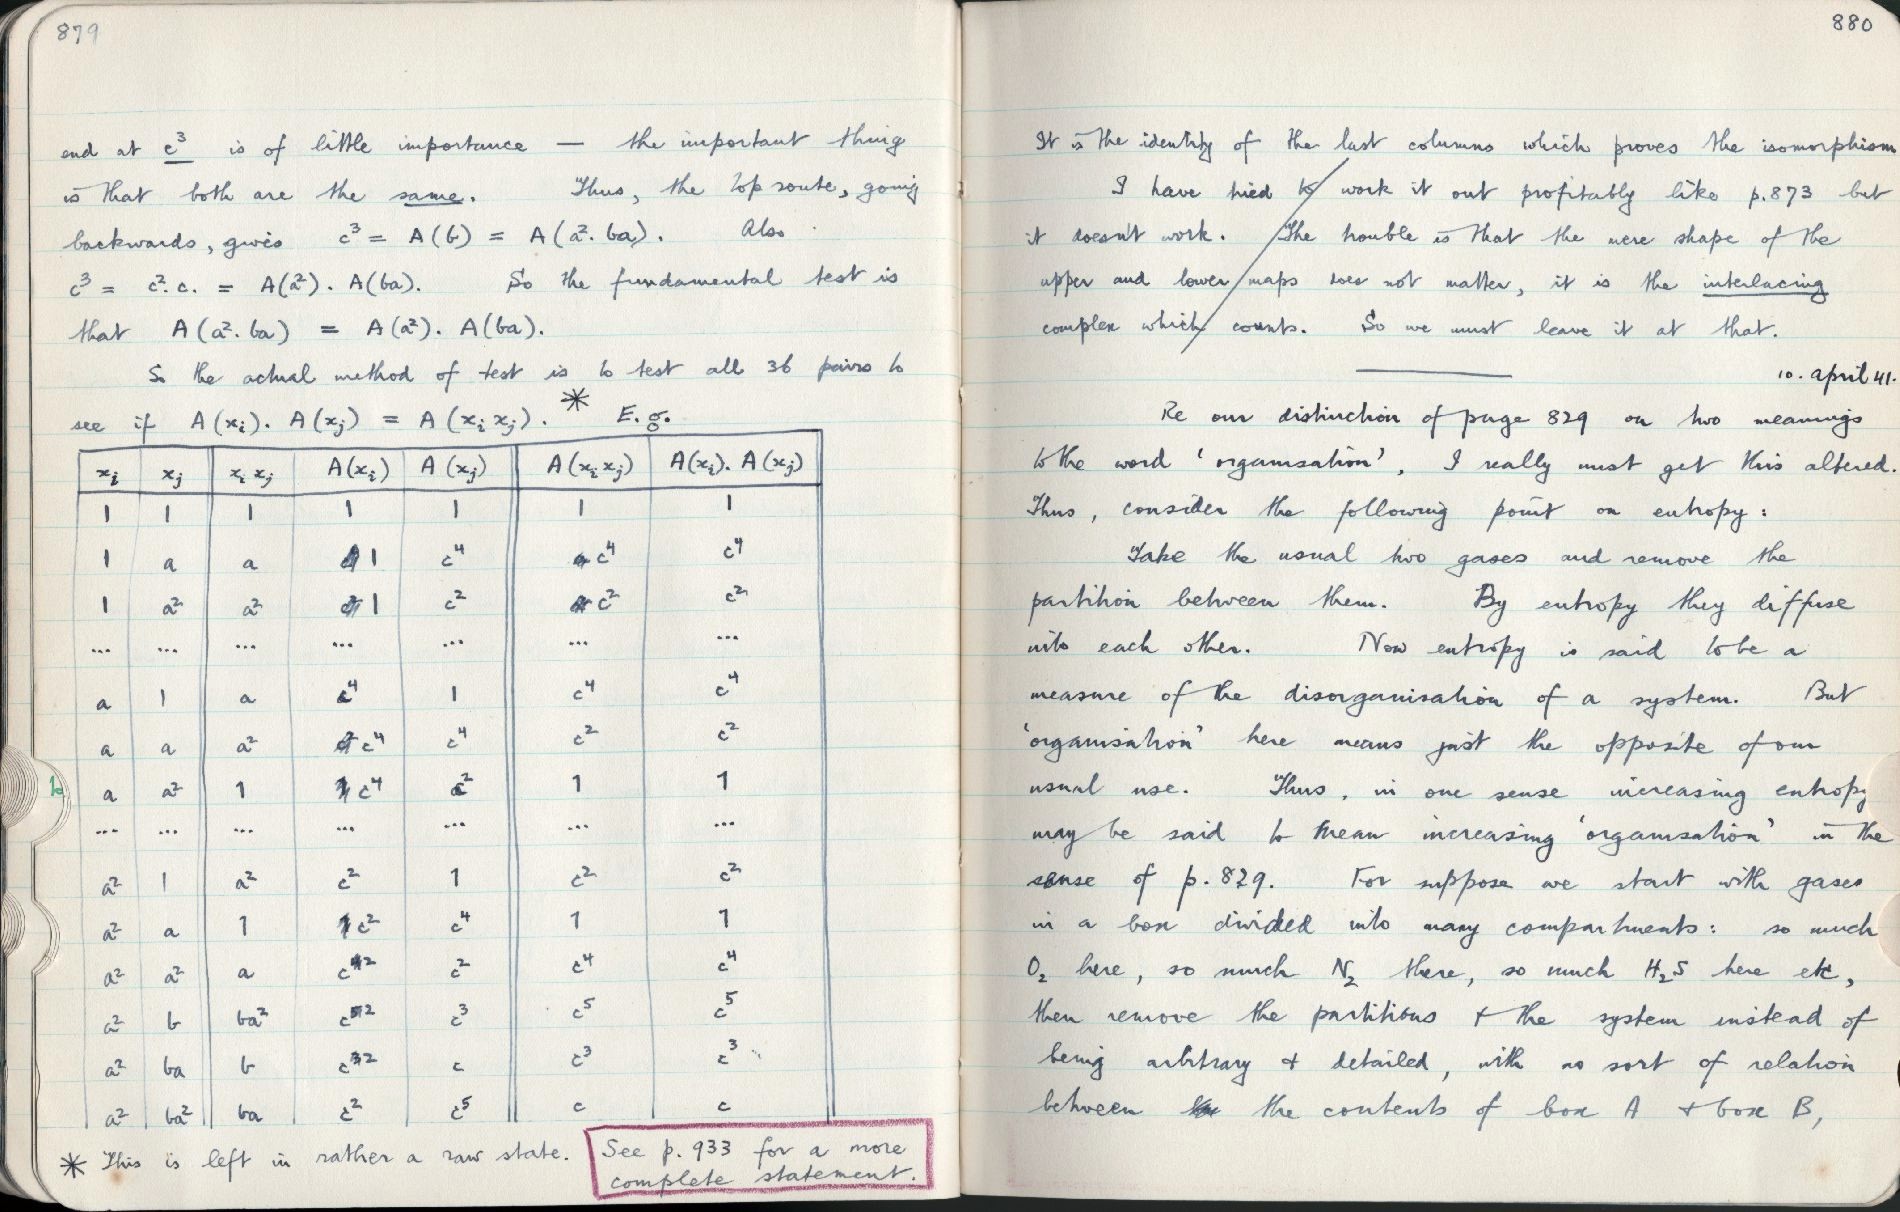 879
end at c³ is of little importance — the important thing
is that both are the same. Thus, the top route, going
backwards, gives c³ = A(b) = A(a². ba). Also
c³ = c². c. = A(a²). A(ba). So the fundamental test is
that A(a². ba) = A(a²). A(ba).
So the actual method of test is to test all 36 pairs to
see if A(xᵢ). A(xⱼ) = A(xᵢ xⱼ). * E.g.
xᵢ xⱼ xᵢ xⱼ A(xᵢ) A(xⱼ) A(xᵢ xⱼ) A(xᵢ). A(xⱼ)
1 1 1 1 1 1 1
1 a a 1 c⁴ c⁴ c⁴
1 a² a² 1 c² c² c²
... ... ... ... ... ... ...
a 1 a c⁴ 1 c⁴ c⁴
a a a² c⁴ c⁴ c² c²
a a² 1 c⁴ c² 1 1
... ... ... ... ... ... ...
a² 1 a² c² 1 c² c²
a² a 1 c² c⁴ 1 1
a² a² a c² c² c⁴ c⁴
a² b ba² c² c³ c⁵ c⁵
a² ba b c² c c³ c³
a² ba² ba c² c⁵ c c
* This is left in rather a raw state.
See p. 933 for a more
complete statement.
880
It is the identity of the last columns which proves the isomorphism
I have tried to work it out profitably like p.873 but
it doesn't work. The trouble is that the mere shape of the
upper and lower maps does not matter, it is the interlacing
complex which counts. So we must leave it at that.
10. april 41.
Re our distinction of page 829 on two meanings
to the word 'organisation', I really must get this altered.
Thus, consider the following point on entropy:
Take the usual two gases and remove the
partition between them. By entropy they diffuse
into each other. Now entropy is said to be a
measure of the disorganisation of a system. But
'organisation' here means just the opposite of our
usual use. Thus, in one sense increasing entropy
may be said to mean increasing 'organisation' in the
sense of p. 829. For suppose we start with gases
in a box divided into many compartments: so much
O₂ here, so much N₂ there, so much H₂S here etc,
then remove the partitions + the system instead of
being arbitrary + detailed, with no sort of relation
between the contents of box A + box B,